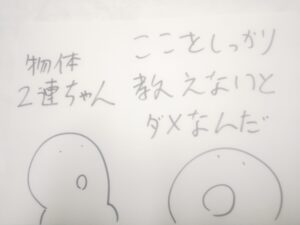 物体
2連ちゃん
ここをしっかり
教えないと
ダメなんだ